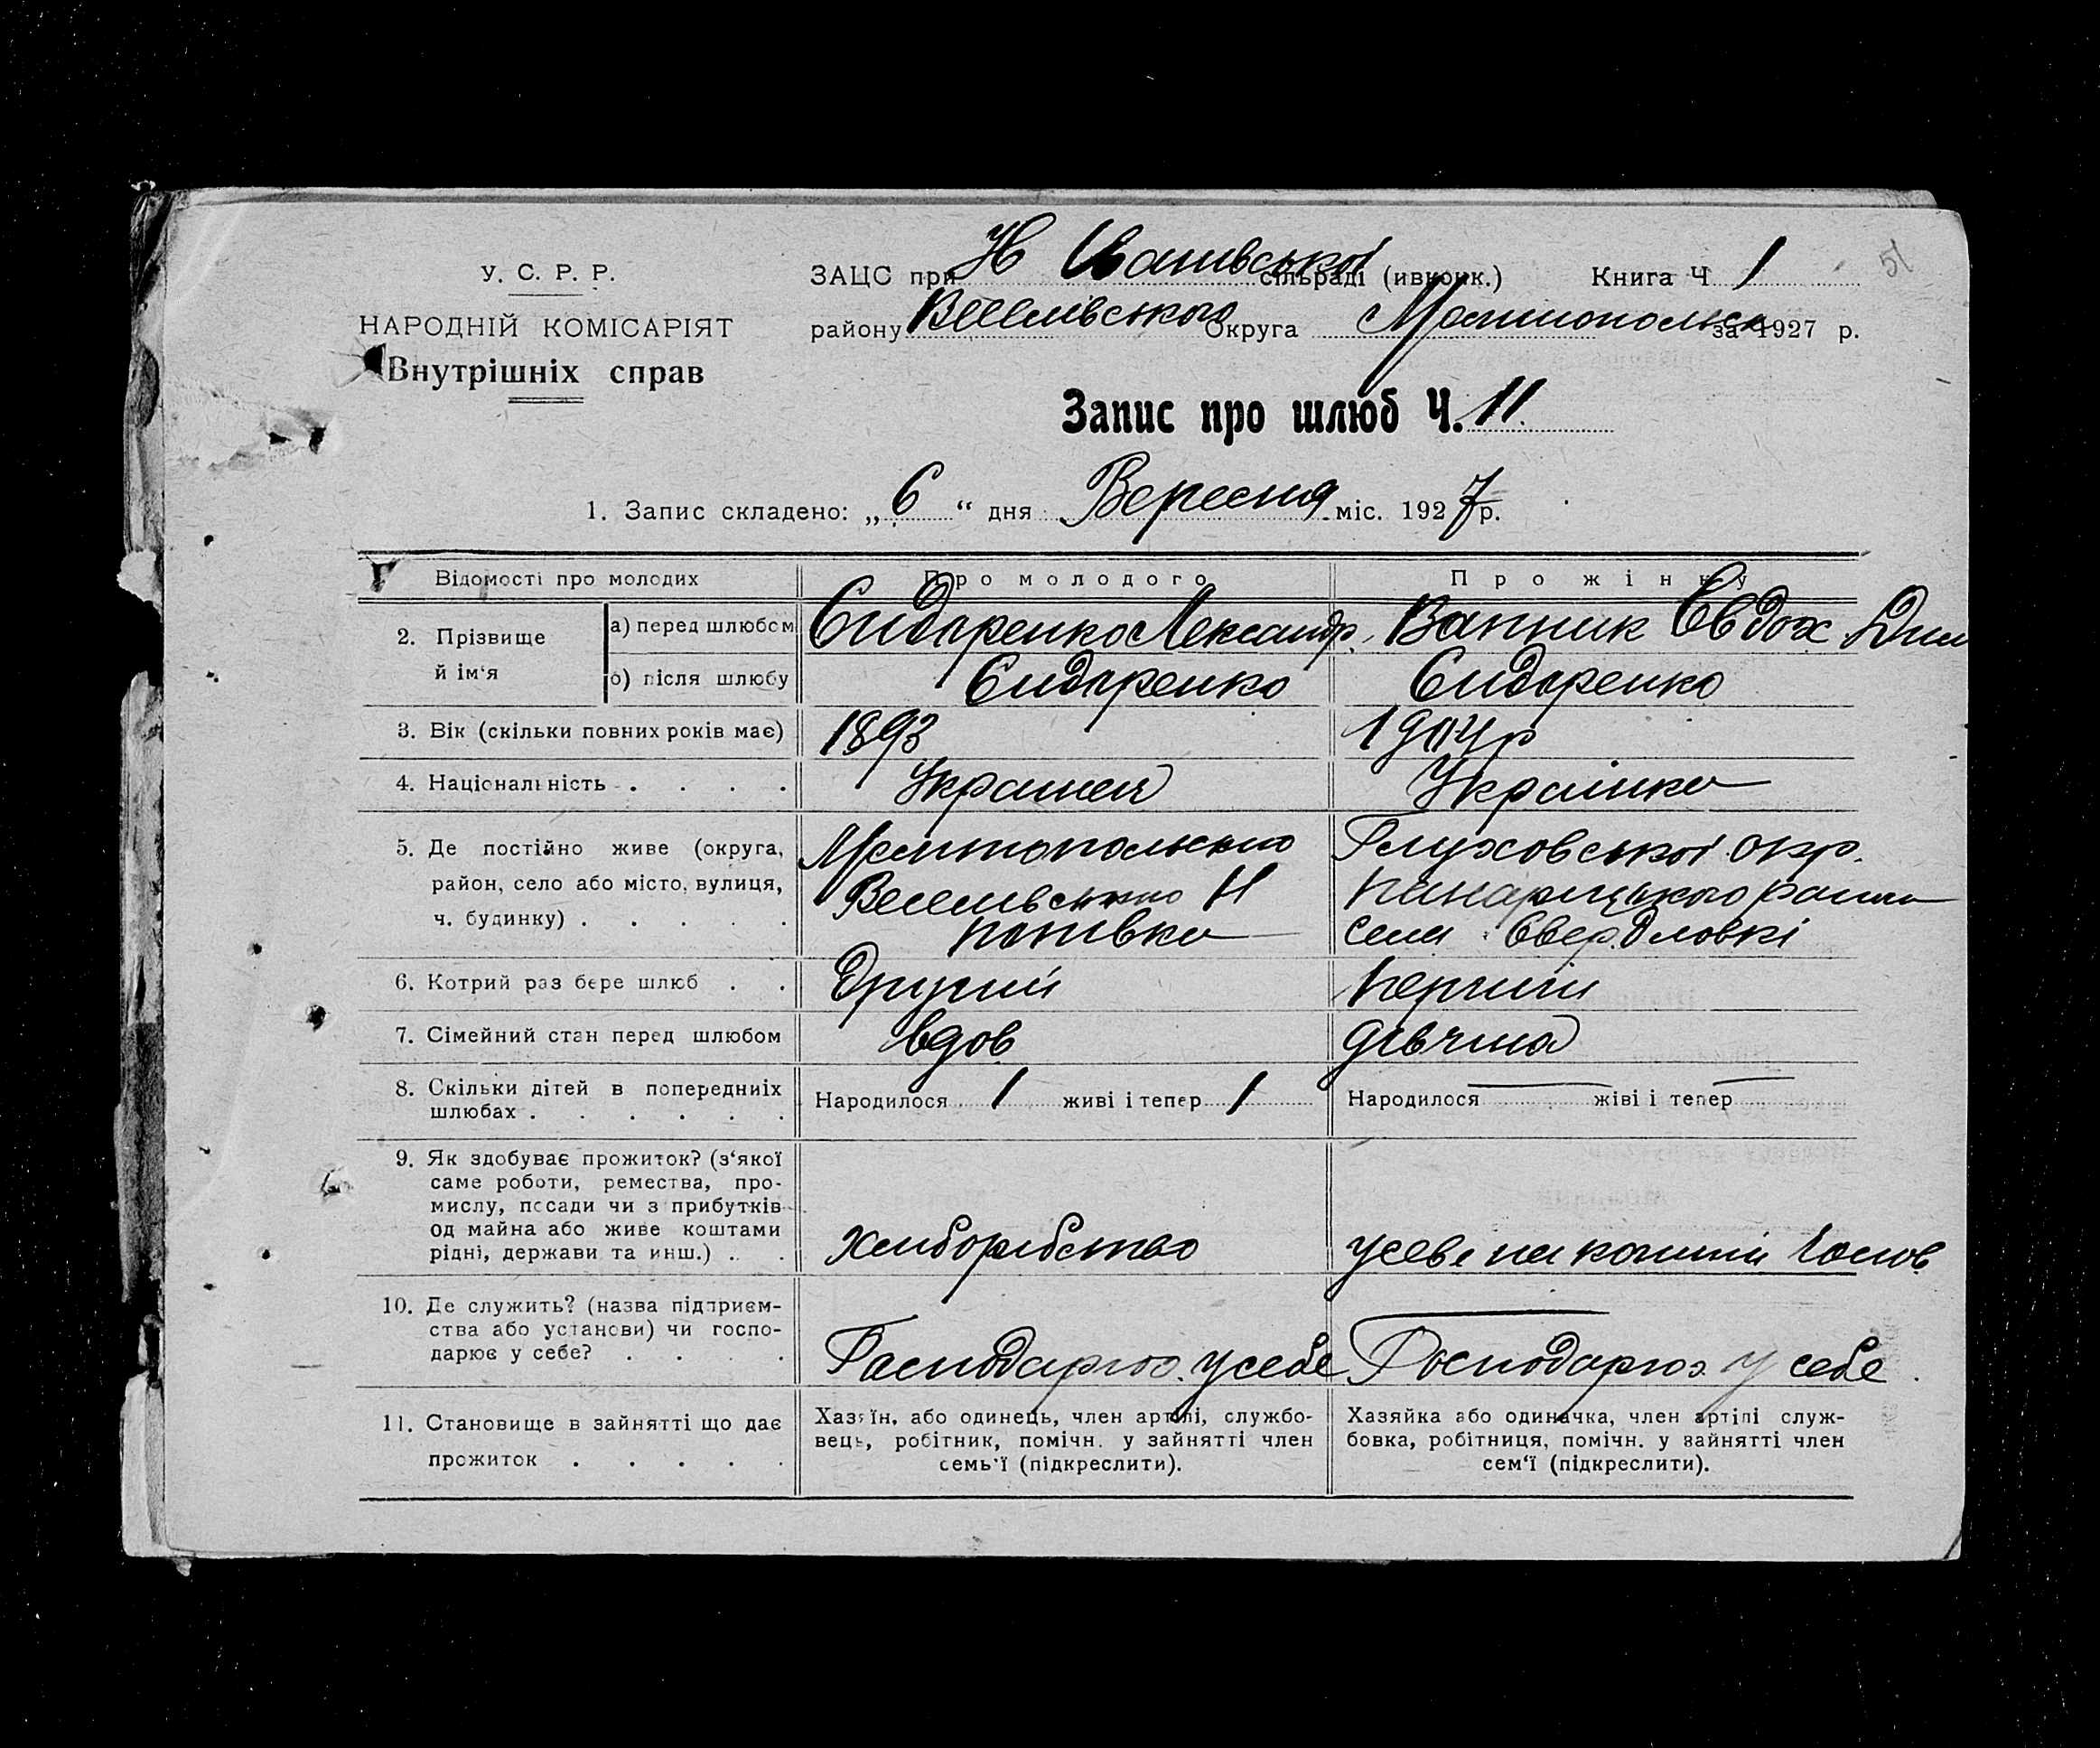 51
У. С. Р. Р.
НАРОДНІЙ КОМІСАРІЯТ
Внутрішніх справ
ЗАЦС при Н сільраді (ивконк.) Книга Ч 1
району Веселівського Округа за 1927 р.
Запис про шлюб Ч. 11.
1. Запис складено: „6“ дня Вересня міс. 1927 р.
Відомості про молодих Про молодого Про жінку
2. Прізвище й ім‘я
а) перед шлюбом Сидоренко Лександр. Ванник Євдох Дми
б) після шлюбу Сидоренко Сидоренко
3. Вік (скільки повних років має) 1893 1904р
4. Національність . . . . Украинец Українка
5. Де постійно живе (округа,
район, село або місто, вулиця,
ч. будинку) . . . . .
Н
Глуховської окр.
села
6. Котрий раз бере шлюб . . Другий Перший
7. Сімейний стан перед шлюбом вдов дівчина
8. Скільки дітей в попередниіх
шлюбах . . . . . .
Народилося 1 живі і тепер 1 Народилося — жіві і тепер —
9. Як здобуває прожиток? (з‘якої
саме роботи, ремества, про-
мислу, посади чи з прибутків
од майна або живе коштами
рідні, держави та инш.) . .
Хліборобство на кошти
10. Де служить? (назва підприєм-
ства або установи) чи госпо-
дарює у себе? . . . .
Господарюэ. у себе Господарюэ у себе
11. Становище в зайнятті що дає
прожиток . . . . .
Хазяїн, або одинець, член артілі, службо-
вець, робітник, помічн. у зайнятті член
семь‘ї (підкреслити).
Хазяйка або одиначка, член артілі служ-
бовка, робітниця, помічн. у зайнятті член
сем‘ї (підкреслити).